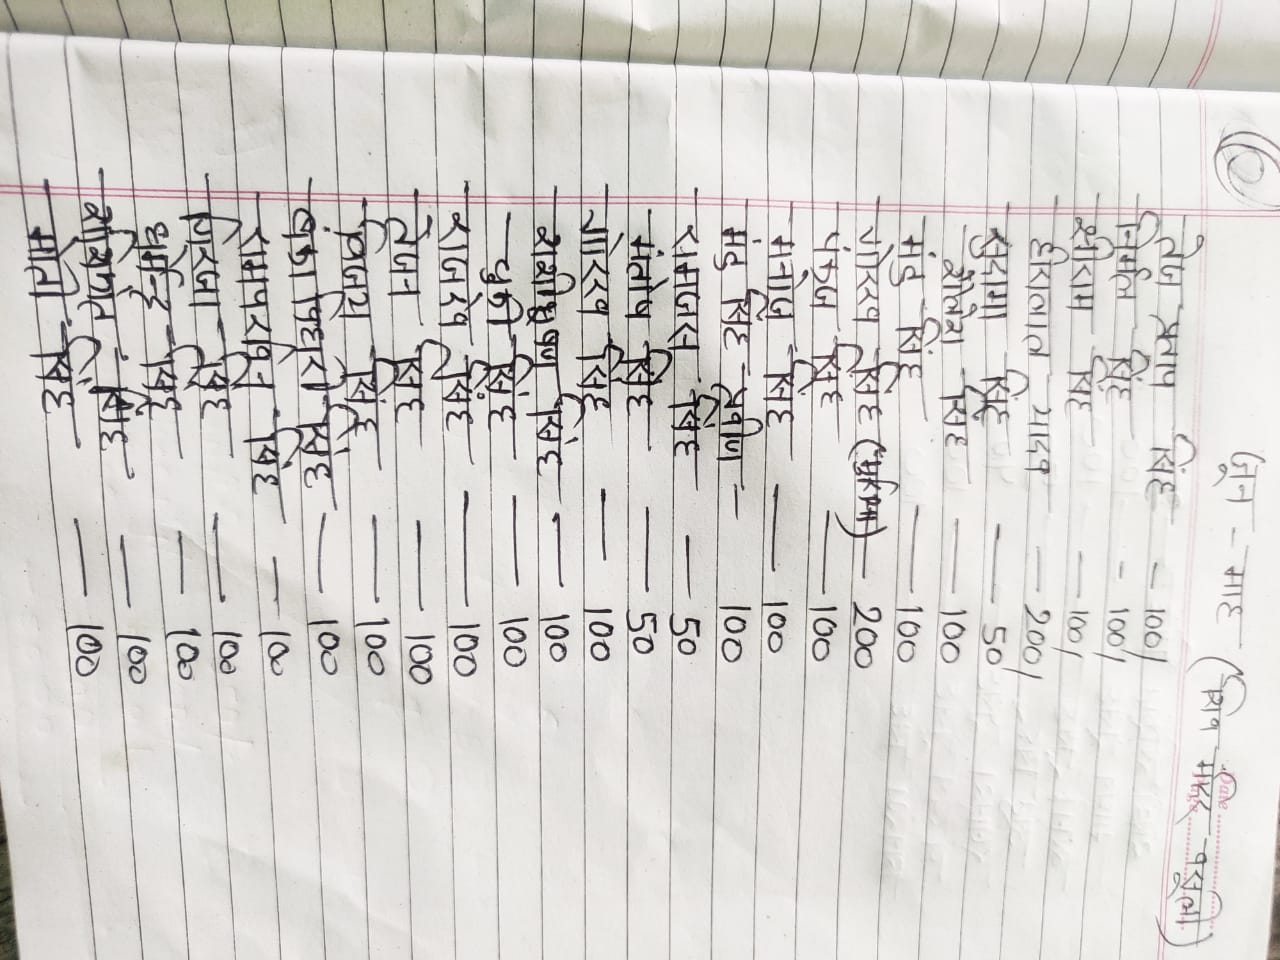 6
जून - माह (शिव मंदिर वसूली)
Date
तेज प्रताप सिंह - 100/
निर्मल सिंह - 100/
श्रीराम सिंह - 100/
हीरालाल यादव - 200/
सुदामा सिंह - 50
शैलेश सिंह - 100
मंडु सिंह - 100
गोरख सिंह (मुखिया) - 200
पंकज सिंह - 100
मनोज सिंह - 100
मंडु सिंह प्रवीण - 100
रामजस सिंह - 50
मंतोष सिंह - 50
गोरख सिंह - 100
शशीभूषण सिंह - 100
सिंह - 100
राजदेव सिंह - 100
तेजन सिंह - 100
विजय सिंह - 100
सिंह - 100
सिंह - 100
गिरजा सिंह - 100
धर्मेन्द्र सिंह - 100
शशिकांत सिंह - 100
मोती सिंह - 100